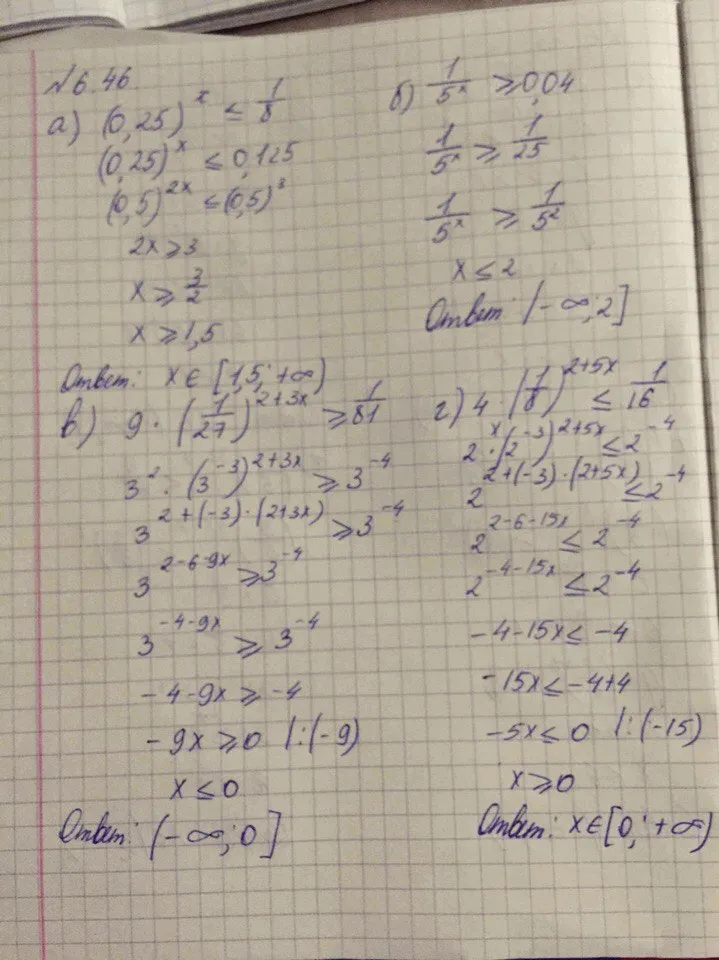 №6.46.
а) (0,25)^x ≤ 1/8
(0,25)^x ≤ 0,125
(0,5)^2x ≤ (0,5)^3
2x ≥ 3
x ≥ 3/2
x ≥ 1,5
Ответ: x ∈ [1,5; +∞)
б) 1/5^x ≥ 0,04
1/5^x ≥ 1/25
1/5^x ≥ 1/5^2
x ≤ 2
Ответ: (-∞; 2]
в) 9 · (1/27)^2+3x ≥ 1/81
3^2 · (3^-3)^2+3x ≥ 3^-4
3^2+(-3)·(2+3x) ≥ 3^-4
3^2-6-9x ≥ 3^-4
3^-4-9x ≥ 3^-4
-4-9x ≥ -4
-9x ≥ 0 |:(-9)
x ≤ 0
Ответ: (-∞; 0]
г) 4 · (1/8)^2+5x ≤ 1/16
2^x · (2^-3)^2+5x ≤ 2^-4
2^2+(-3)·(2+5x) ≤ 2^-4
2^2-6-15x ≤ 2^-4
2^-4-15x ≤ 2^-4
-4-15x ≤ -4
-15x ≤ -4+4
-5x ≤ 0 |:(-15)
x ≥ 0
Ответ: x ∈ [0; +∞)